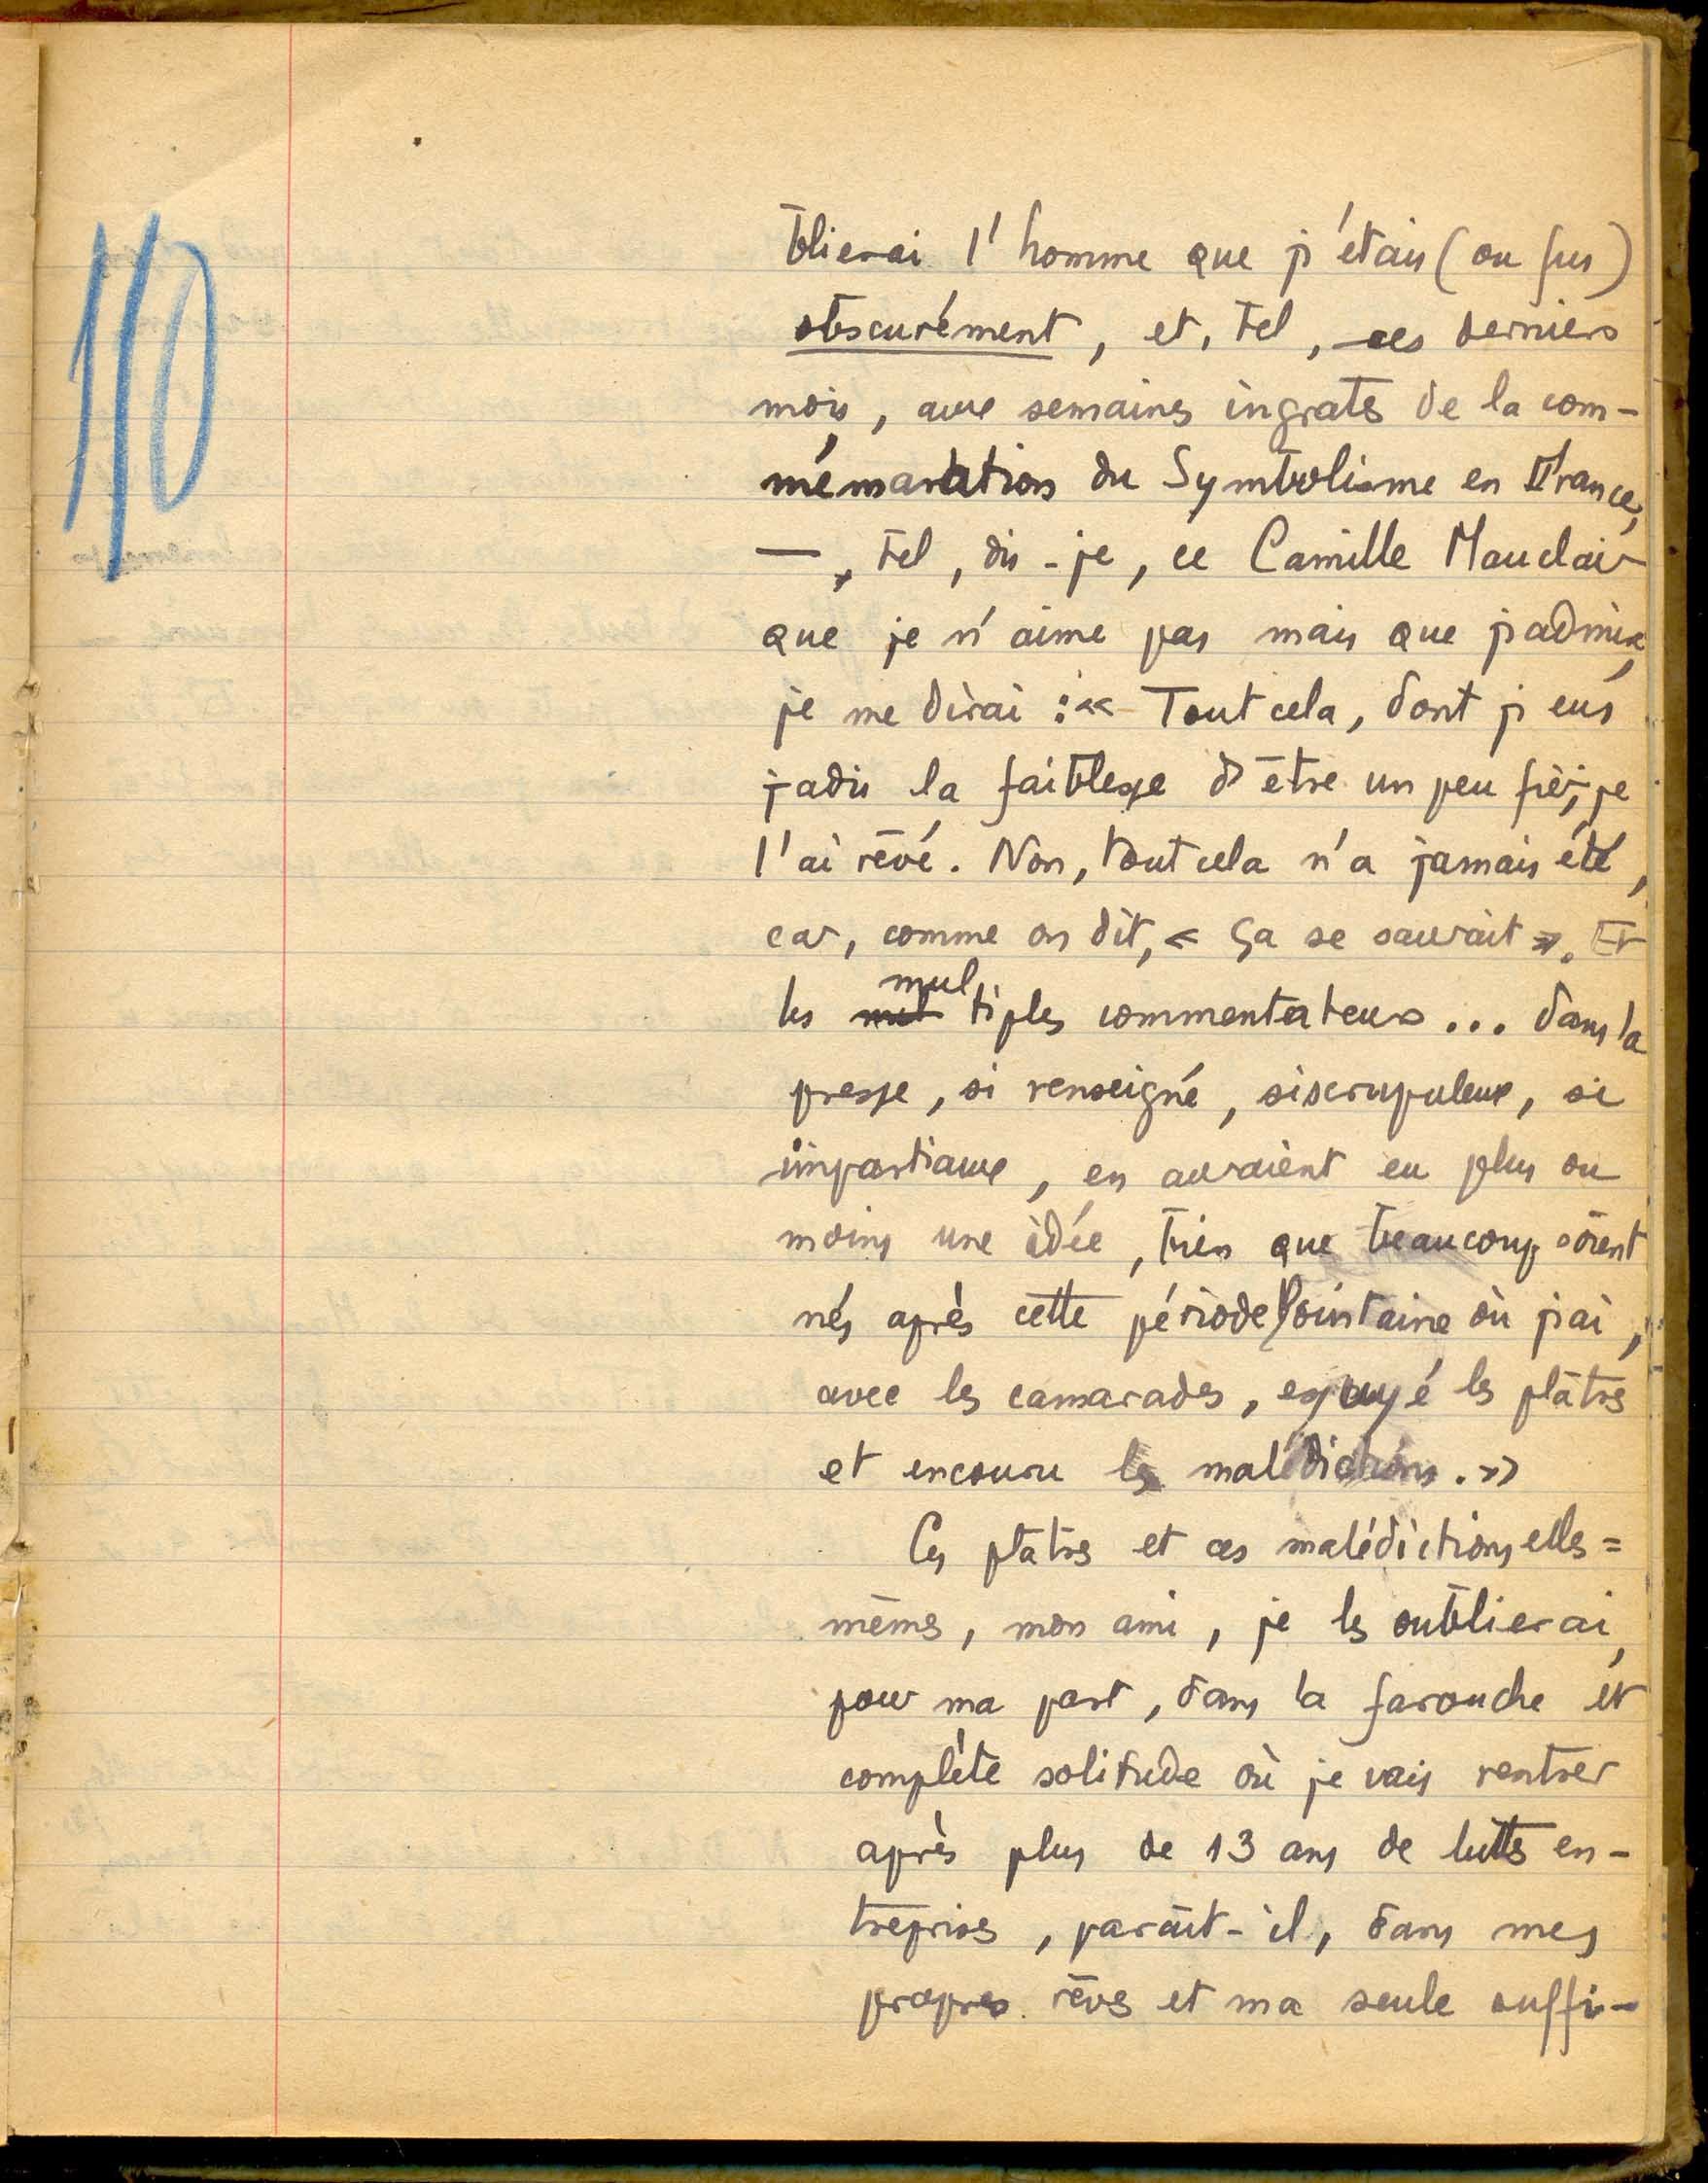 110
blierai l'homme que j'étais (ou fus)
obscurément, et, tel, ces derniers
mois, aux semaines ingrates de la com-
mémoration du Symbolisme en France,
—, tel, dis-je, ce Camille Mauclair
que je n'aime pas mais que j'admire,
je me dirai : « Tout cela, dont j'eus
jadis la faiblesse d'être un peu fier, je
l'ai rêvé. Non, tout cela n'a jamais été,
car, comme on dit, « ça se saurait ». Et
les multiples commentateurs... dans la
presse, si renseigné, si scrupuleux, si
impartiaux, en auraient eu plus ou
moins une idée, bien que beaucoup soient
nés après cette période lointaine où j'ai,
avec les camarades, essuyé les plâtres
et encouru les malédictions. »
Ces plâtres et ces malédictions elles=
mêmes, mon ami, je les oublierai,
pour ma part, dans la farouche et
complète solitude où je vais rentrer
après plus de 13 ans de luttes en-
treprises, paraît-il, dans mes
propres rêves et ma seule suffi-